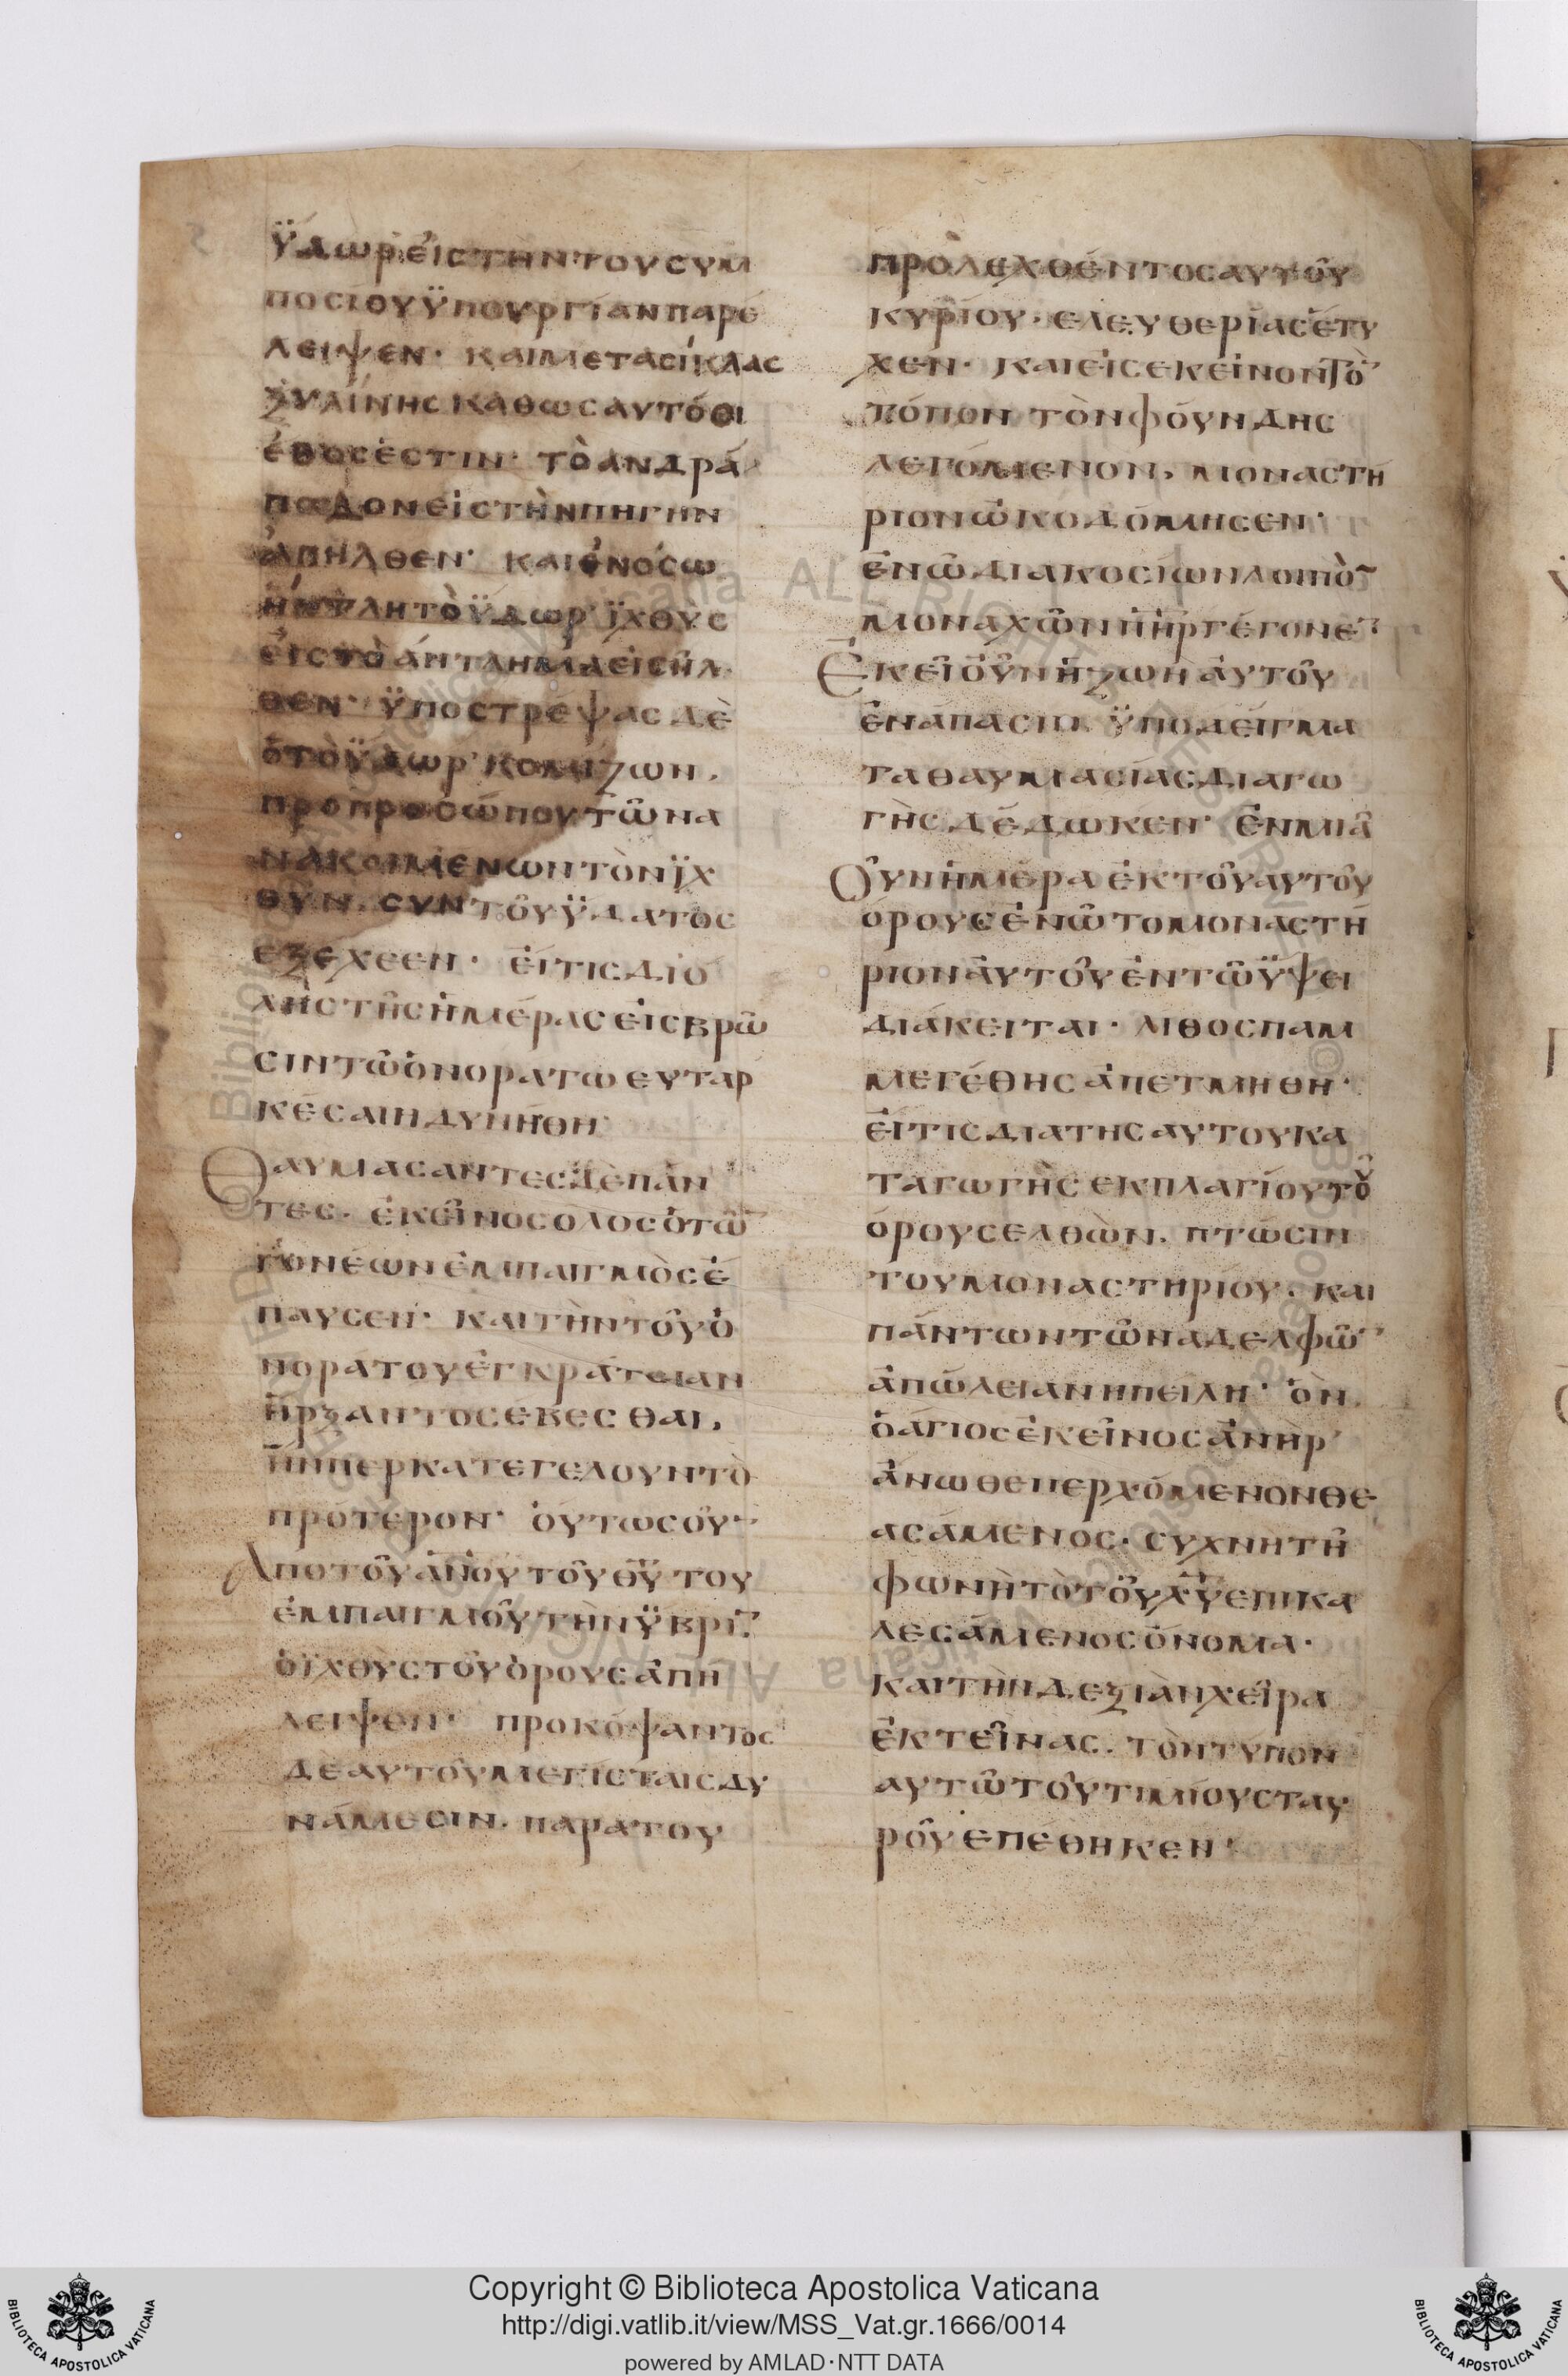 ϋδωρ εἰς τὴν τοῦ συμ
ποσίου ϋπουργίαν παρέ
λειψεν· καὶ μετὰ σίκλας
ξυλίνης καθὼς αὐτόθι
ἔθος ἐστὶν· τὸ ἀνδρά
ποδον εἰς τὴν πηγὴν
ἀπῆλθεν· καὶ ἐν ὅσω
ἤντλη τὸ ϋδωρ ϊχθὺς
εἰς τὸ ἄντλημα εἰσῆλ
θεν· ϋποστρέψας δὲ
ὁ τὸ ϋδωρ κομίζων,
πρὸ προσώπου τῶν ἀ
νακειμένων τὸν ϊχ
θὺν. σὺν τοῦ ϋδατος
ἐξέχεεν· εἵτις δι ὁ
λης τῆς ἡμέρας εἰς βρῶ
σιν τῶ ὁνοράτω ἐυταρ
κέσαι ηδυνήθη
Θαυμάσαντες δὲ πάν
τες. ἐκεῖνος ὅλος ὁ τῶν
γονέων ἐμπαιγμὸς ἐ
παυσεν· καὶ τὴν τοῦ ὁ
νοράτου ἐγκράτειαν
ἤρξαντο σέβεσθαι,
ἥνπερ κατεγέλουν τὸ
πρότερον· οὕτως οὖν
Ἀπὸ τοῦ ἀνου τοῦ θυ του
ἐμπαιγμοῦ τὴν ϋβριν
ὁ ϊχθὺς τοῦ ὄρους ἀπη
λείψθη· προκόψαντος
δὲ αὐτοῦ μεγίσταις δυ
νάμεσιν. παρὰ τοῦ
προλεχθέντος αὐτοῦ
κυρίου. ἐλευθερίας ἔτυ
χεν· καὶ εἰς ἐκεῖνον τὸ
τόπον τὸν φόυνδης
λεγόμενον, μοναστή
ριον ὠκοδόμησεν·
ἐν ῶ διακοσίων λοιπὸν
μοναχῶν πὴρ γέγονεν
Ἐκεῖ οὖν ἡ ζωὴ αὐτοῦ
ἐν ἅπασιν ϋποδείγμα
τα θαυμασίας διαγω
γῆς δέδωκεν· ἐν μιᾶ
Οὖν ἡμέρα ἐκ τοῦ αὐτοῦ
ὄρους ἐν ῶ τὸ μοναστή
ριον αὐτοῦ ἐν τῶ ϋψει
διάκειται· λίθος παμ
μεγέθης ἀπετμήθη·
εἵτις διὰ τῆς αὐτοῦ κα
ταγωγῆς ἐκ πλαγίου τοῦ
ὄρους ἐλθὼν. πτῶσιν
τοῦ μοναστηρίου. καὶ
πάντων τῶν ἀδελφῶν
ἀπώλειαν ἠπείλη· ὃν
ὁ ἅγιος ἐκεῖνος ἀνὴρ
ἄνωθεν ἐρχόμενον θε
ασάμενος· συχνὴ τῆ
φωνῆ τὸ τοῦ χυ ἐπικα
λεσάμενος ὄνομα·
καὶ τὴν δεξιὰν χεῖρα
ἐκτείνας. τὸν τύπον
αὐτῶ τοῦ τιμίου σταυ
ροῦ ἐπέθηκεν·
Copyright © Biblioteca Apostolica Vaticana
http://digi.vatlib.it/view/MSS_Vat.gr.1666/0014
powered by AMLAD·NTT DATA